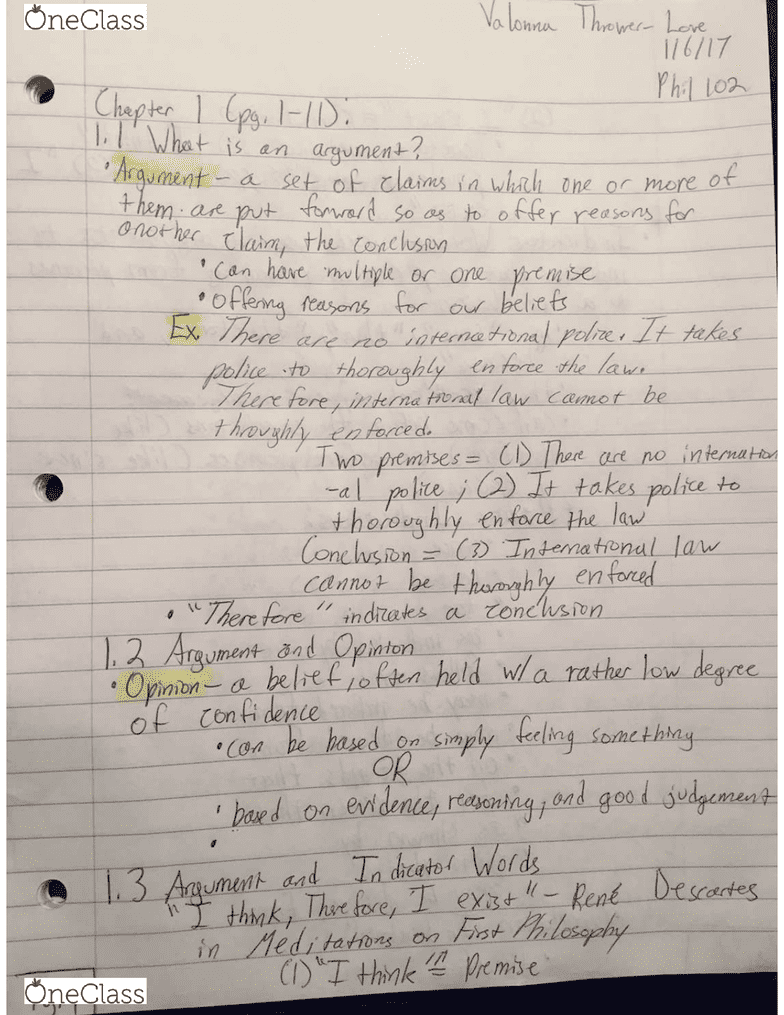 OneClass
Valonna Thrower-Love
1/6/17
Phil 102
Chapter 1 (pg. 1-11):
1.1 What is an argument?
• Argument - a set of claims in which one or more of
them are put forward so as to offer reasons for
another claim, the conclusion
• Can have multiple or one premise
• Offering reasons for our beliefs
Ex. There are no international police. It takes
police to thoroughly enforce the law.
Therefore, international law cannot be
throughly enforced.
Two premises = (1) There are no internation
-al police; (2) It takes police to
thoroughly enforce the law
Conclusion = (3) International law
cannot be thoroughly enforced
• "Therefore" indicates a conclusion
1.2 Argument and Opinion
• Opinion - a belief, often held w/a rather low degree
of confidence
• Can be based on simply feeling something
OR
• based on evidence, reasoning, and good judgement
•
1.3 Argument and Indicator Words
"I think, Therefore, I exist" - René Descartes
in Meditations on First Philosophy
(1) "I think" = Premise
OneClass